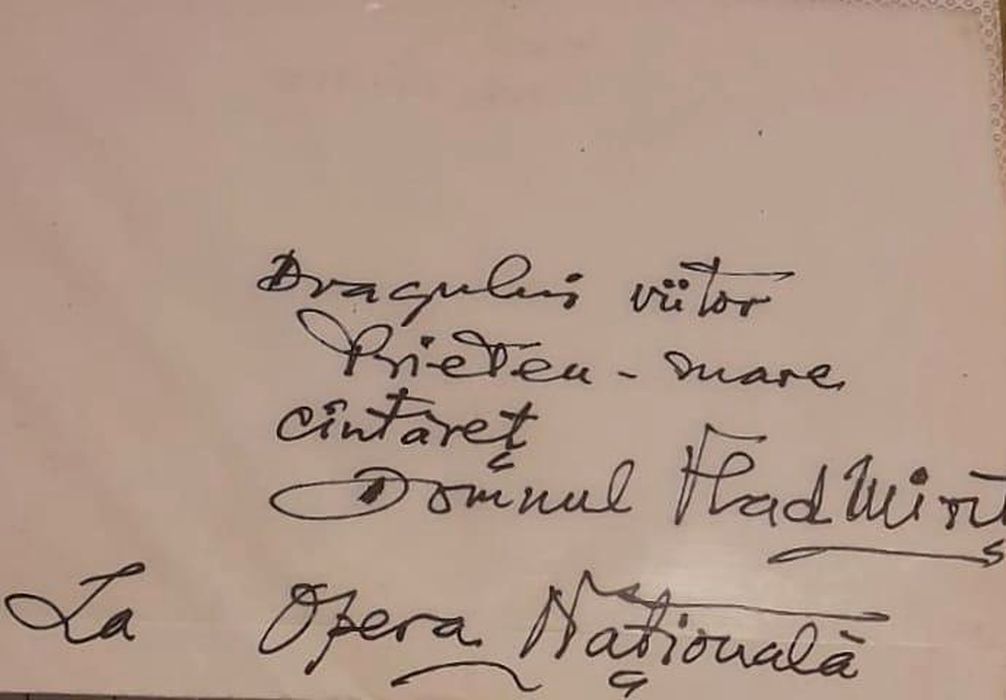 Dragului viitor
Prieten - mare
cîntăreț
Domnul Vlad Miriț
La Opera Națională